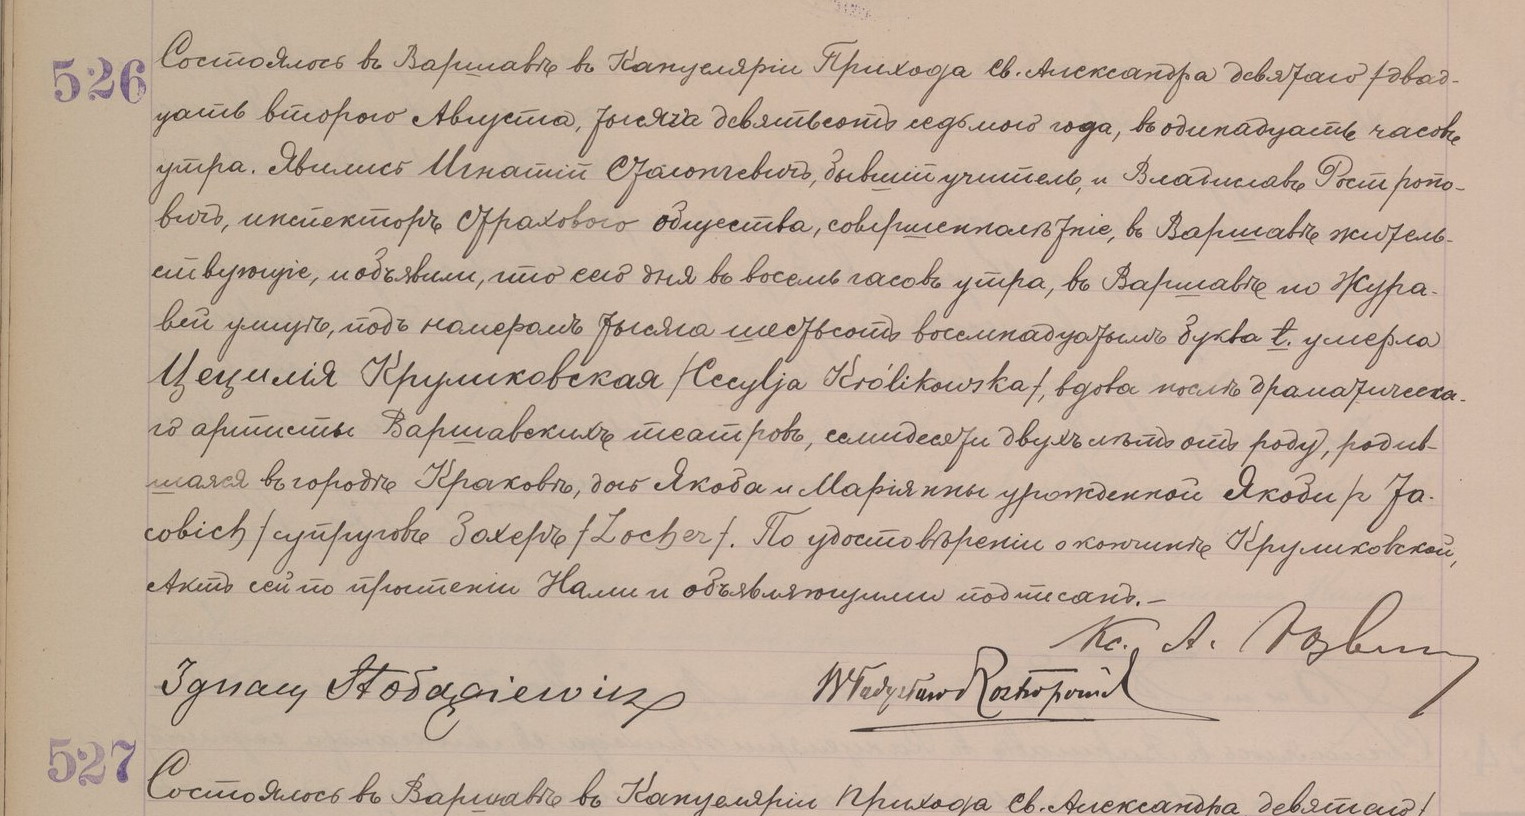 526
Состоялось въ Варшавѣ въ Канцеляріи Прихода Св. Александра девятаго /двад-
цать второго Августа, тысяча девятьсотъ седьмого года, въ одинадцать часовъ
утра. Явились Игнатій бывшій учитель, и Владиславъ Ростропо-
вичъ, инспекторъ Страхового общества, совершеннолѣтніе, въ Варшавѣ житель-
ствующіе, и объявили, что сего дня въ восемь часовъ утра, въ Варшавѣ по Жура-
вей улицѣ, подъ номеромъ тысяча шестьсотъ восемнадцатымъ буква t. умерла
Цецилія Круликовская /Cecylja Królikowska/, вдова послѣ драматическа-
го артисты Варшавскихъ театровъ, семидесяти двухъ лѣтъ отъ роду, родив-
шаяся въ городѣ Краковѣ, дочь Якоба и Маріянны урожденной Якоби /z Ja-
cobich/ супруговъ Зохеръ /Zocher/. По удостовѣреніи о кончинѣ Круликовской,
Актъ сей по прочтеніи Нами и объявляющими подписанъ.—
Кс. А.
Ignacy Władysław Roztropowicz
527
Состоялось въ Варшавѣ въ Канцеляріи Прихода Св. Александра девятаго/